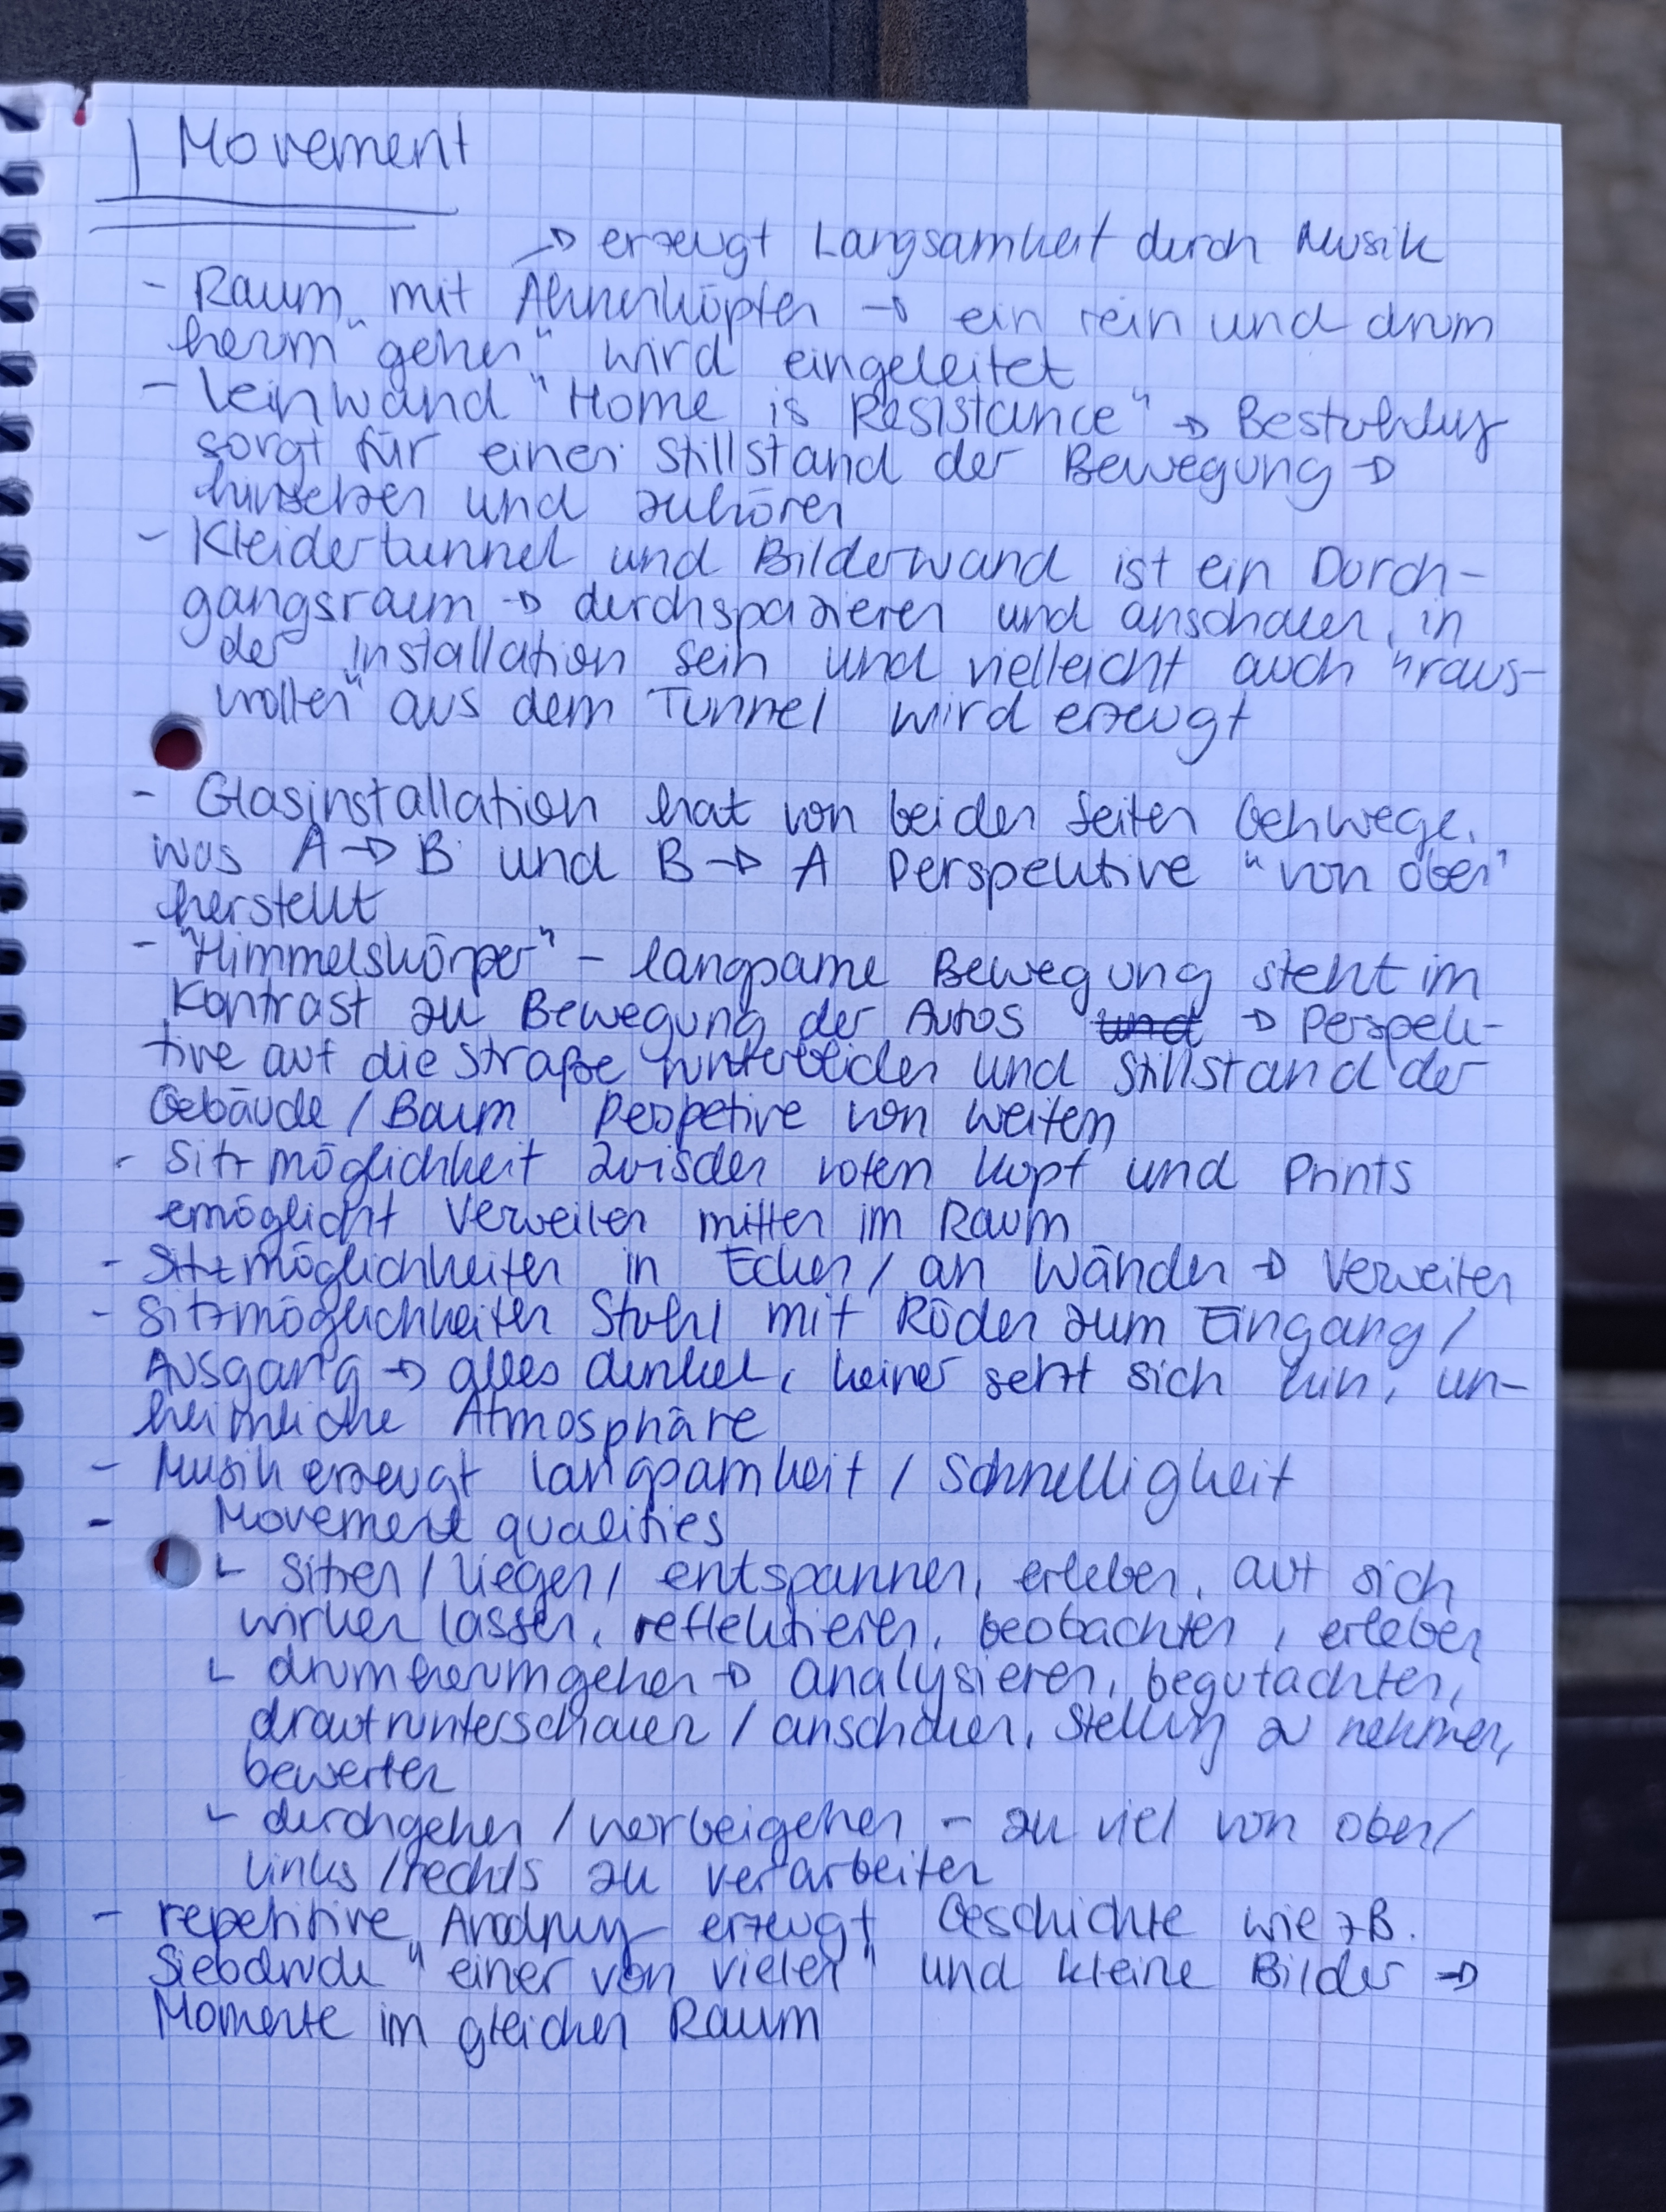 Movement
→ erzeugt Langsamkeit durch Musik
- Raum mit Ahnenköpfen → ein rein und drum
herum "gehen" wird eingeleitet
- Leinwand "Home is Resistance" → Bestuhlung
sorgt für einen Stillstand der Bewegung →
hinsetzen und zuhören
- Kleidertunnel und Bilderwand ist ein Durch-
gangsraum → durchspazieren und anschauen, in
der Installation sein und vielleicht auch "raus-
wollen" aus dem Tunnel wird erzeugt
- Glasinstallation hat von beiden Seiten Gehwege,
was A → B und B → A Perspektive "von oben"
herstellt
- "Himmelskörper" - langsame Bewegung steht im
Kontrast zu Bewegung der Autos und → Perspek-
tive auf die Straße runterblicken und Stillstand der
Gebäude / Baum Perspetive von weitem
- Sitzmöglichkeit zwischen roten Kopf und Prints
ermöglicht Verweilen mitten im Raum
- Sitzmöglichkeiten in Ecken / an Wänden → Verweilen
- Sitzmöglichkeiten Stuhl mit Räder zum Eingang /
Ausgang → alles dunkel, keiner setzt sich hin, un-
heimliche Atmosphäre
- Musik erzeugt Langsamkeit / Schnelligkeit
- Movement qualities
└ Sitzen / Liegen / entspannen, erleben, auf sich
wirken lassen, reflektieren, beobachten, erleben
└ drumherumgehen → analysieren, begutachten,
draufrunterschauen / anschauen, Stellung zu nehmen,
bewerten
└ durchgehen / vorbeigehen - zu viel von oben /
links / rechts zu verarbeiten
- repetitive Anordnung erzeugt Geschichte wie z.B.
Siebdrucke "einer von vielen" und kleine Bilder →
Momente im gleichen Raum